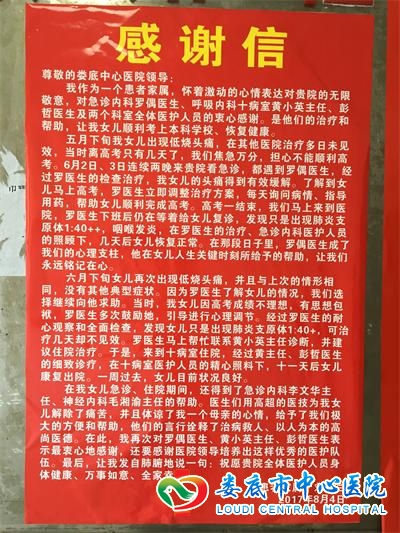 感谢信
尊敬的娄底中心医院领导：
我作为一个患者家属，怀着激动的心情表达对贵院的无限
敬意，对急诊内科罗偶医生、呼吸内科十病室黄小英主任、彭
哲医生及两个科室全体医护人员的衷心感谢。是他们的治疗和
帮助，让我女儿顺利考上本科学校、恢复健康。
五月下旬我女儿出现低烧头痛，在其他医院治疗多日未见
效，当时离高考只有几天了，我们焦急万分，担心不能顺利高
考。6月2日、3日连续两晚来贵院看急诊，都遇到罗偶医生，经
过罗医生的检查治疗，我女儿的头痛得到有效缓解。了解到女
儿马上高考，罗医生立即调整治疗方案，每天询问病情、指导
用药，帮助女儿顺利完成高考。高考一结束，我们马上来到医
院，罗医生下班后仍在等着给女儿复诊，发现只是出现肺炎支
原体1:40++，咽喉发炎，在罗医生的治疗、急诊内科医护人员
的照顾下，几天后女儿恢复正常。在那段日子里，罗偶医生成了
我们的心理支柱，他在女儿人生关键时刻所给予的帮助，让我们
永远铭记在心。
六月下旬女儿再次出现低烧头痛，并且与上次的情形相
同，没有其他典型症状。因为罗医生了解女儿的情况，我们选
择继续向他求助。当时，我女儿因高考成绩不理想，有思想包
袱，罗医生多次鼓励她，引导进行心理调节。经过罗医生的耐
心观察和全面检查，发现女儿只是出现肺炎支原体1:40+，可治
疗几天却不见效。罗医生马上帮忙联系黄小英主任诊断，并建
议住院治疗。于是，来到十病室住院，经过黄主任、彭哲医生
的细致诊疗，在十病室医护人员的精心照料下，十一天后女儿
康复出院。一周过去，女儿目前状况良好。
在我女儿急诊、住院期间，还得到了急诊内科李文华主
任、神经内科毛湘渝主任的帮助。医生们用高超的医技为我女
儿解除了痛苦，并且体谅了我一个母亲的心情，给予了我们极
大的方便和帮助，他们的言行诠释了治病救人、以人为本的高
尚医德。在此，我再次对罗偶医生、黄小英主任、彭哲医生表
示最衷心地感谢，还要感谢医院领导培养出这样优秀的医护队
伍。最后，让我发自肺腑地说一句：祝愿贵院全体医护人员身
体健康、万事如意、全家
2017年8月4日
娄底市中心医院
LOUDI CENTRAL HOSPITAL